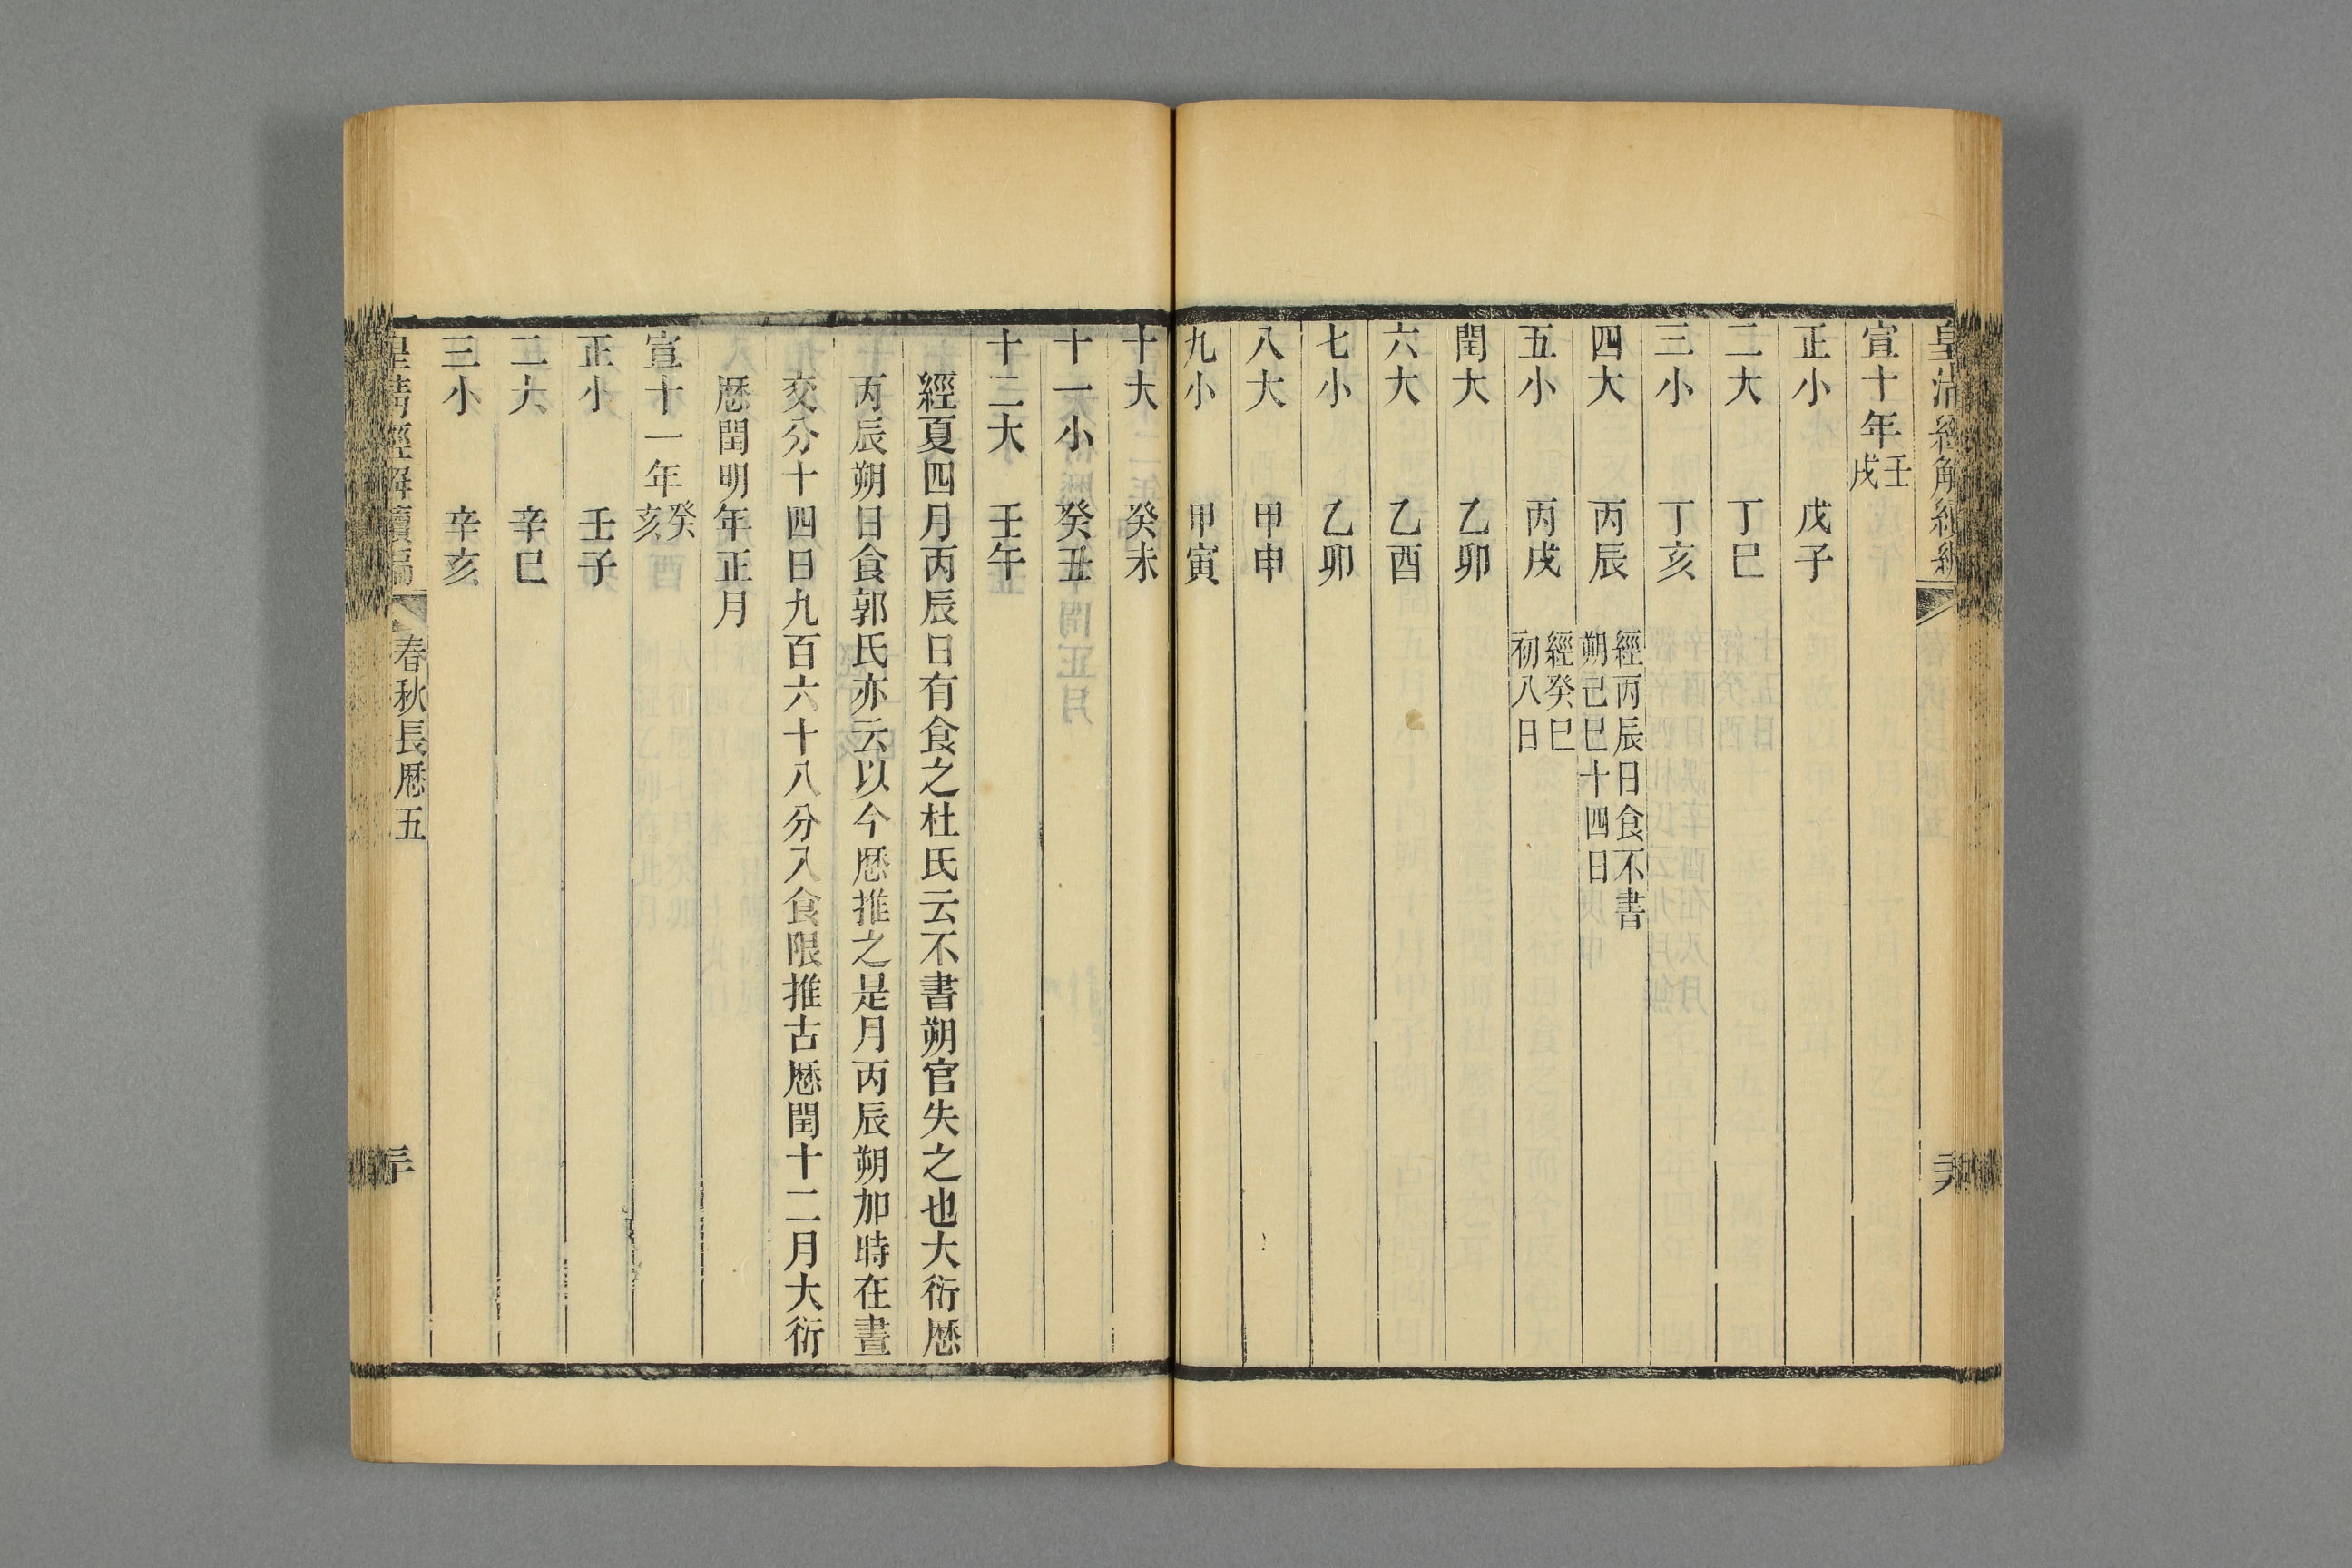 宣十年壬戌
正小 戊子
二大 丁巳
三小 丁亥
四大 丙辰 經丙辰日食不書朔己巳十四日
五小 丙戌 經癸巳初八日
閏大 乙卯
六大 乙酉
七小 乙卯
八大 甲申
九小 甲寅
十大 癸未
十一小 癸丑
十二大 壬午
經夏四月丙辰日有食之杜氏云不書朔官失之也大衍厯
丙辰朔日食郭氏亦云以今厯推之是月丙辰朔加時在晝
交分十四日九百六十八分入食限推古厯閏十二月大衍
厯閏明年正月
宣十一年癸亥
正小 壬子
二大 辛巳
三小 辛亥
皇清經解續編 春秋長厯五